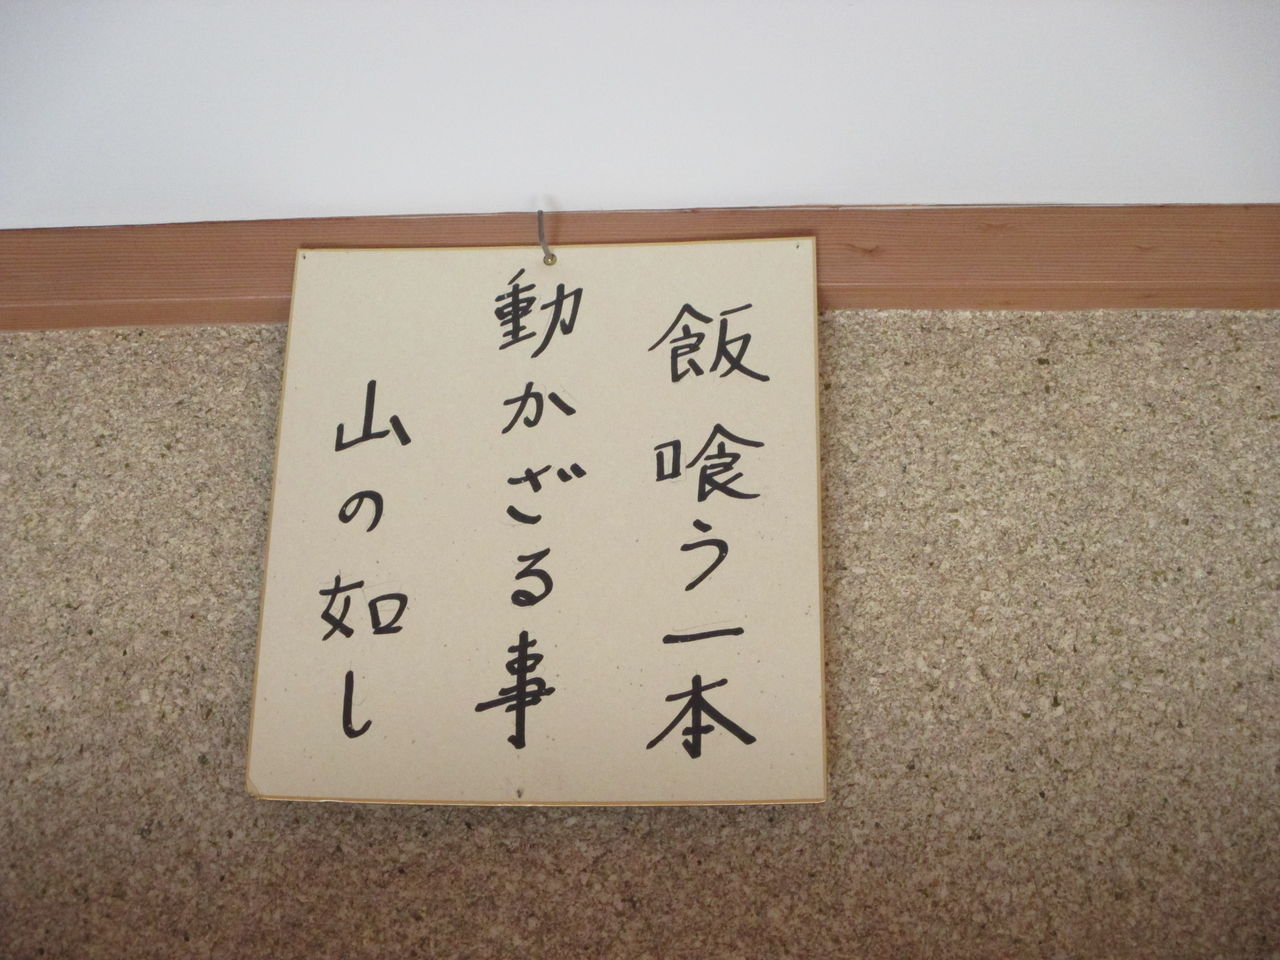 飯喰う一本
動かざる事
山の如し